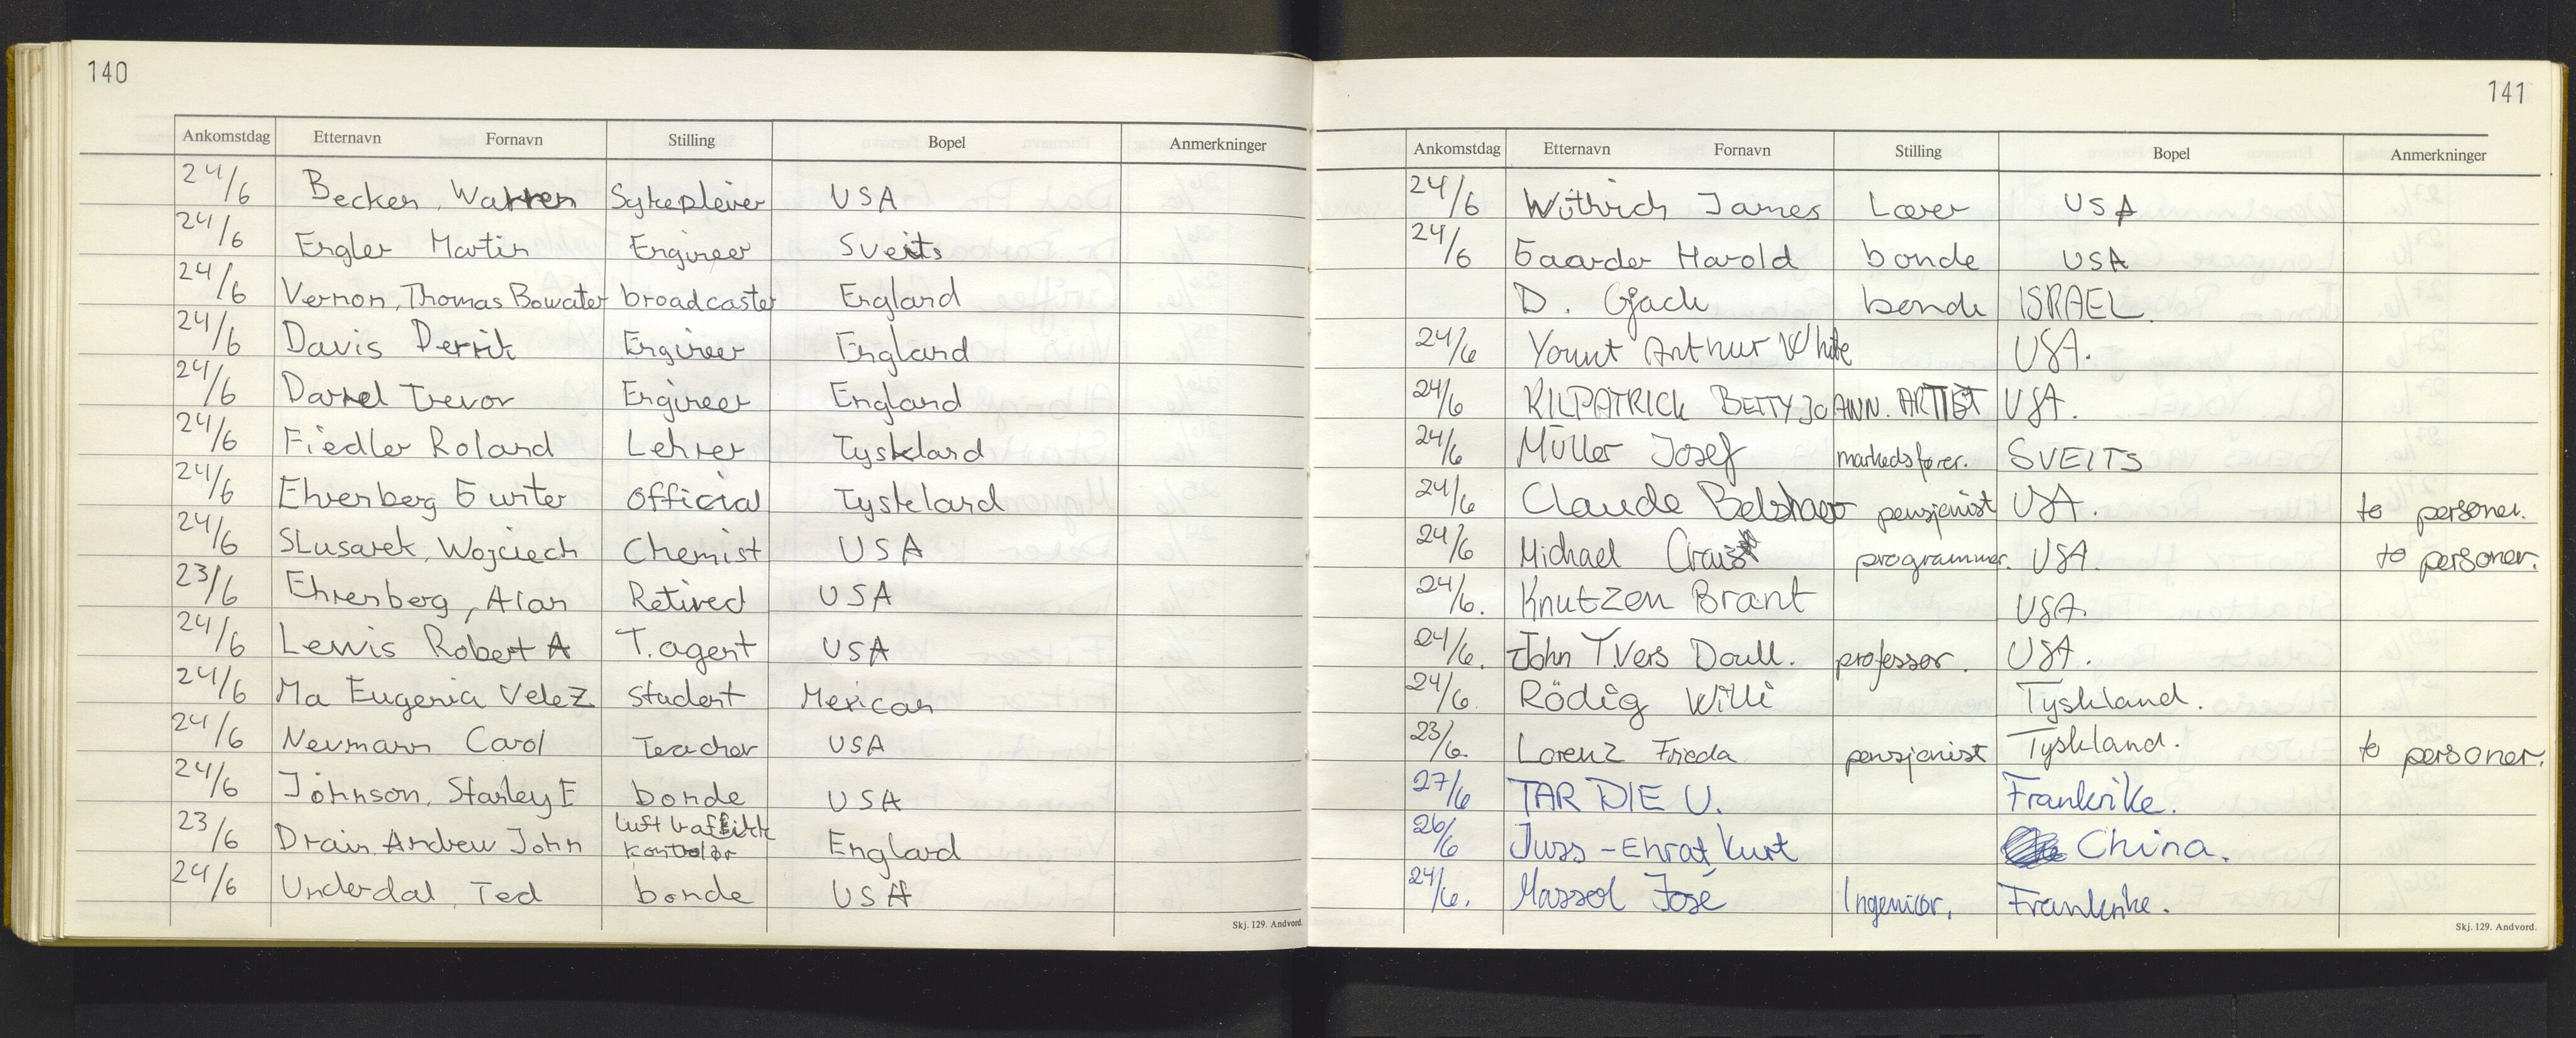 140
Ankomstdag Etternavn Fornavn Stilling Bopel Anmerkninger
24/6 Becker, Warren Sykepleier USA
24/6 Engler Martin Engineer Sveits
24/6 Vernon, Thomas Bowater broadcaster England
24/6 Davis Derrik Engineer England
24/6 Darrel Trevor Engineer England
24/6 Fiedler Roland Lehrer Tyskland
24/6 Ehrenberg Gunter Official Tyskland
24/6 Slusarek, Wojciech Chemist USA
23/6 Ehrenberg, Alan Retired USA
24/6 Lewis Robert A T. agent USA
24/6 Ma Eugenia Velez student Mexican
24/6 Neumann Carol Teacher USA
24/6 Johnson, Stanley E bonde USA
23/6 Drain, Andrew John lufttrafikk kontrolør England
24/6 Underdal, Ted bonde USA
Skj. 129. Andvord.
141
Ankomstdag Etternavn Fornavn Stilling Bopel Anmerkninger
24/6 Wüthrich James Lærer USA
24/6 Gaarder Harold bonde USA
D. Gjack bonde ISRAEL.
24/6 Yount Arthur White USA.
24/6 KILPATRICK BETTY JO ANN. ARTIST USA.
24/6 Müller Josef markedsfører. SVEITS
24/6 Claude Belshaw pensjonist USA. to personer.
24/6 Michael programmer. USA. to personer.
24/6. Knutzen Brant USA.
24/6. John Yvers Doull. professor. USA.
24/6. Rödig Willi Tyskland.
23/6. Lorenz Frieda pensjonist Tyskland. to personer.
27/6 TARDIE U. Frankrike.
26/6 Juss-Ehrat Kurt China.
24/6. Massol José Ingeniør. Frankrike.
Skj. 129. Andvord.